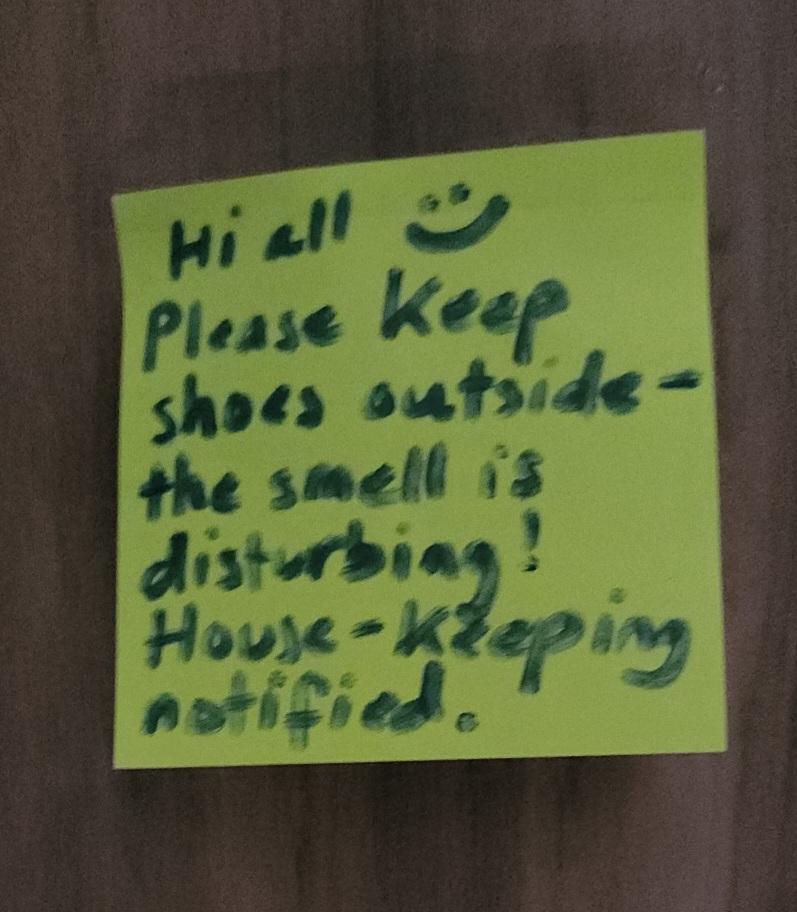 Hi all
Please keep
shoes outside-
the smell is
disturbing!
House-keeping
notified.